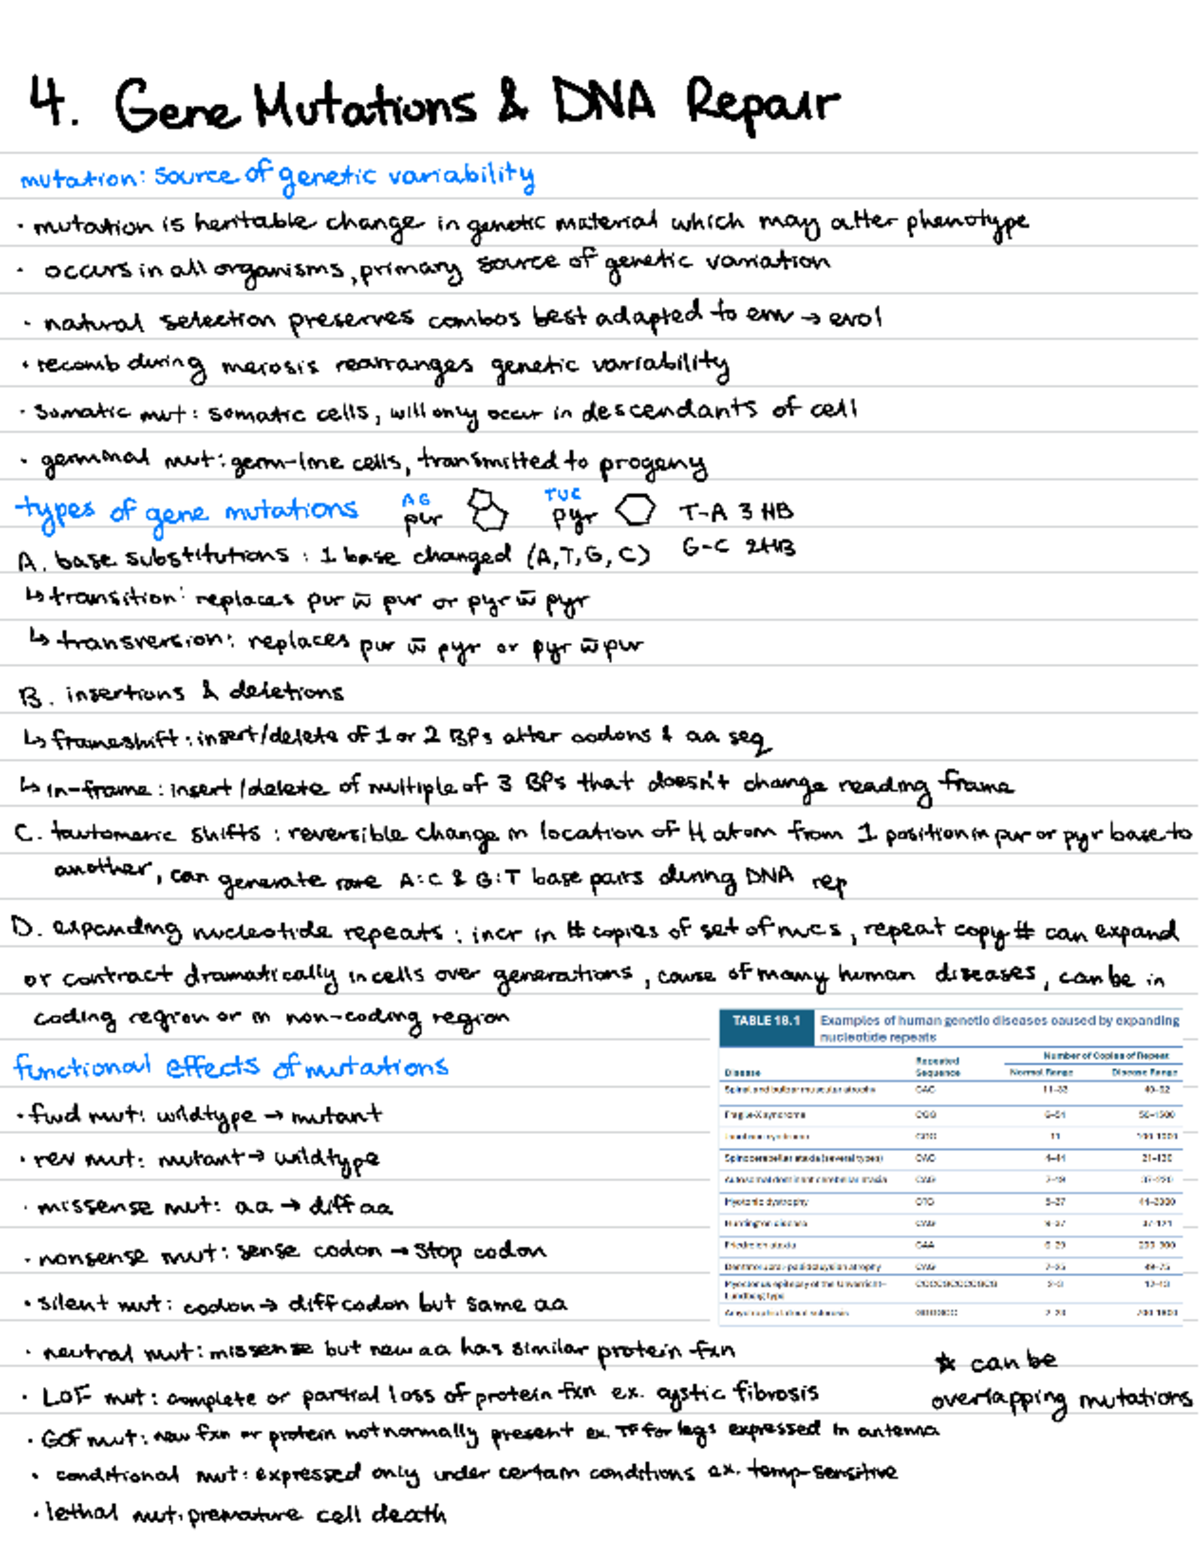 4. Gene Mutations & DNA Repair
mutation: source of genetic variability
· mutation is heritable change in genetic material which may alter phenotype
· occurs in all organisms, primary source of genetic variation
· natural selection preserves combos best adapted to env → evol
· recomb during meiosis rearranges genetic variability
· somatic mut: somatic cells, will only occur in descendants of cell
· germinal mut: germ-line cells, transmitted to progeny
types of gene mutations AG pur TUC pyr T-A 3 HB
G-C 2HB
A. base substitutions : 1 base changed (A,T,G,C)
↳ transition: replaces pur w̄ pur or pyr w̄ pyr
↳ transversion: replaces pur w̄ pyr or pyr w̄ pur
B. insertions & deletions
↳ frameshift: insert/delete of 1 or 2 BPs alter codons & aa seq
↳ in-frame: insert/delete of multiple of 3 BPs that doesn't change reading frame
C. tautomeric shifts : reversible change in location of H atom from 1 position in pur or pyr base to
another, can generate rare A:C & G:T base pairs during DNA rep
D. expanding nucleotide repeats : incr in # copies of set of nucs, repeat copy # can expand
or contract dramatically in cells over generations, cause of many human diseases, can be in
coding region or in non-coding region
TABLE 18.1 Examples of human genetic diseases caused by expanding
nucleotide repeats
Number of Copies of Repeat
Disease Repeated Sequence Normal Range Disease Range
Spinal and bulbar muscular atrophy CAG 11–33 40–62
Fragile-X syndrome CGG 6–54 50–1500
Spinocerebellar ataxia (several types) CAG 4–44 21–130
Autosomal dominant cerebellar ataxia CAG 7–19
Myotonic dystrophy CTG 5–37 44–3000
Huntington disease CAG 9–37 37–121
Friedreich ataxia GAA 6–29 200–900
Dentatorubral-pallidoluysian atrophy CAG 7–25 49–75
Myoclonus epilepsy of the Unverricht–
Lundborg type 2–3 12–13
Amyotrophic lateral sclerosis
functional effects of mutations
· fwd mut: wildtype → mutant
· rev mut: mutant → wildtype
· missense mut: aa → diff aa
· nonsense mut: sense codon → stop codon
· silent mut: codon → diff codon but same aa
· neutral mut: missense but new aa has similar protein fxn
☆ can be
overlapping mutations
· LOF mut: complete or partial loss of protein fxn ex. cystic fibrosis
· GOF mut: new fxn or protein not normally present ex. TF for legs expressed in antenna
· conditional mut: expressed only under certain conditions ex. temp-sensitive
· lethal mut: premature cell death